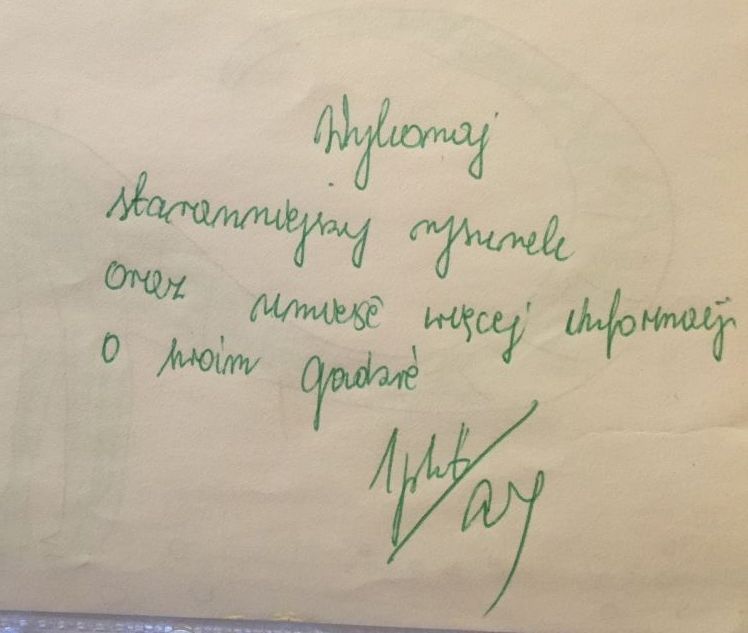 Wykonaj
staranniejszy rysunek
oraz umieść więcej informacji
o swoim gadzie
1pkt/